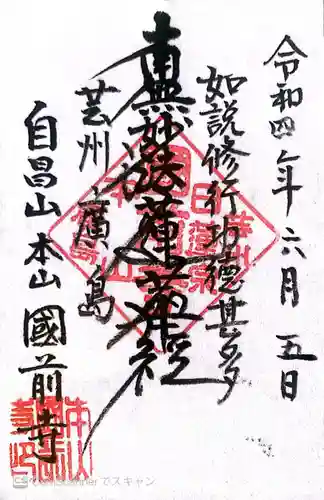 令和四年六月五日
如説修行功徳甚多
南無妙法蓮華経
芸州廣島
自昌山本山國前寺
CamScannerでスキャン